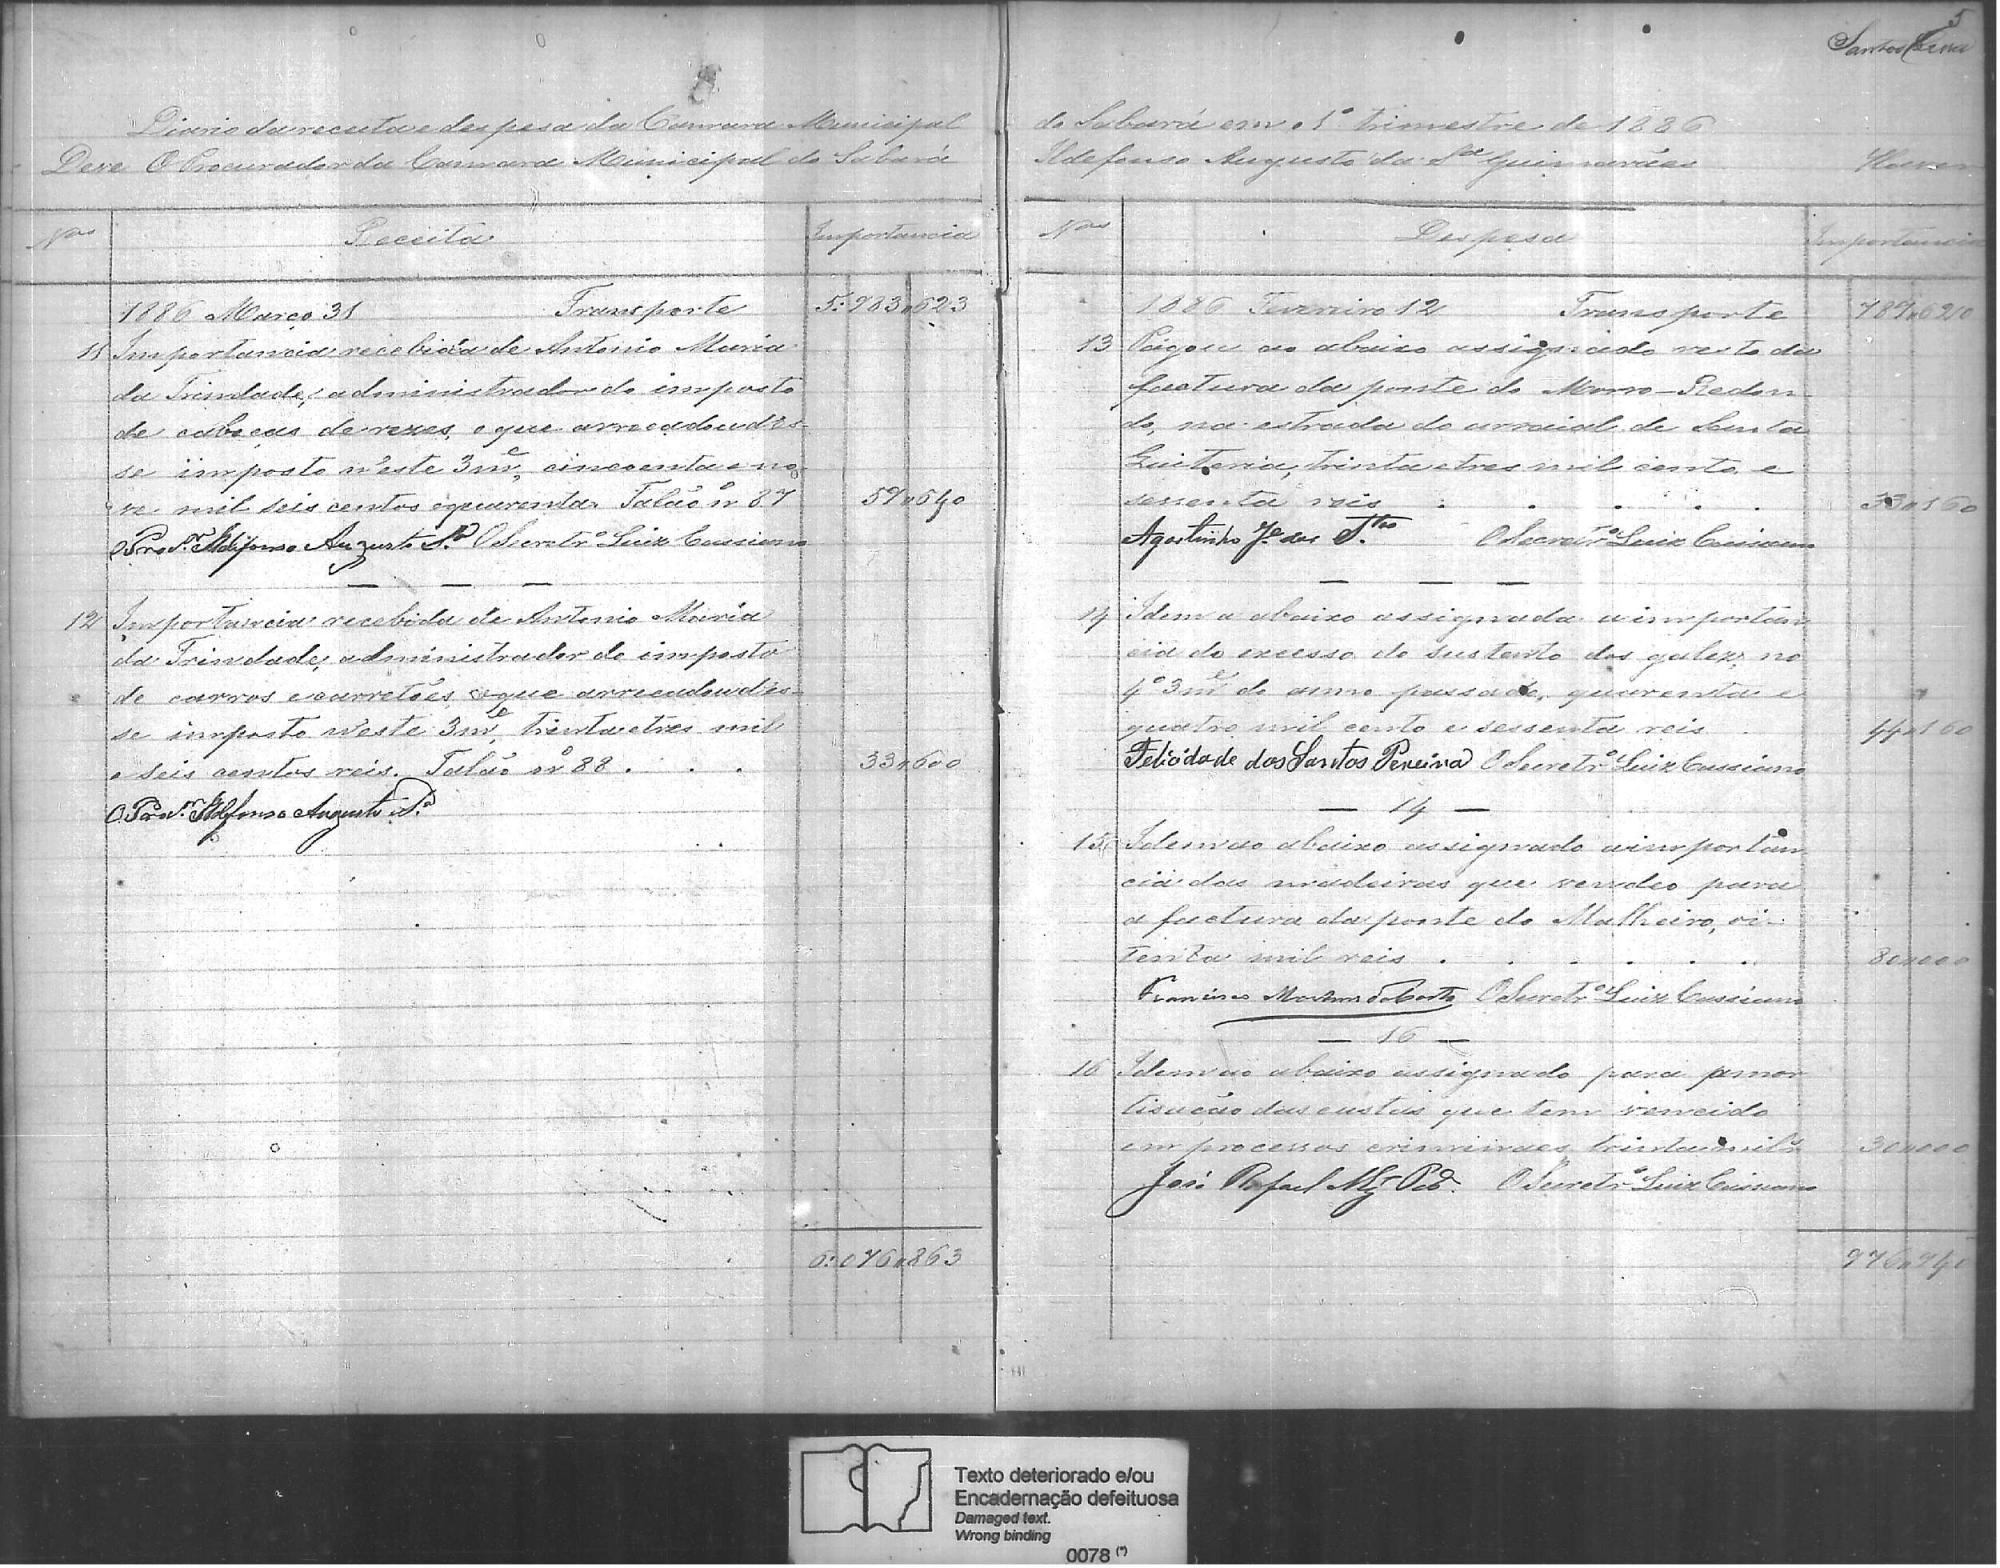 5
Santos
Diario da receita e despesa da Camara Municipal
Deve O Procurador da Camara Municipal do Sabará
Nos Receita Importancia
1886 Março 31 Transporte 5:983,,623
11 Importancia recebida de Antonio Maria
da Trindade, administrador do imposto
de cabeças de rezes, e que arrecadou d'es-
se imposto n'este 3me, cincoenta e no-
ve mil seis centos e quarenta. Talão nº 87 59,,640
O Pror. Ildefonso Augusto Sa. O Secretrº Luiz Cassiano
— — —
12 Importancia recebida de Antonio Maria
da Trindade, administrador do imposto
de carros e carretões, e que arrecadou d'es-
se imposto n'este 3me, trinta e tres mil
e seis centos reis. Talão nº 88 . . . 33,,600
O Pror. Ildefonso Augusto Sa.
6:076,,863
do Sabará em o 1º trimestre de 1886
Ildefonso Augusto da Sa Guimarães Haver
Nos Despesa Importancia
1886 Fevereiro 12 Transporte 789,,620
13 Pagou ao abaixo assignado resto da
factura da ponte do Morro-Redon
do, na estrada do arraial de Santa
Quiteria, trinta e tres mil cento e
sessenta reis . . . . . 33,,160
Agostinho Je. dos Stos O Secretrº Luiz Cassiano
— — —
14 Idem a abaixo assignada a importan
cia do excesso do sustento dos galez no
4º 3me do anno passado, quarenta e
quatro mil cento e sessenta reis . 44,,160
Felicidade dos Santos Pereira O Secretrº Luiz Cassiano
— 14 —
15 Idem ao abaixo assignado a importan
cia das madeiras que vendeo para
a factura da ponte do Malheiro, oi-
tenta mil reis . . . . . . 80,,000
Francisco Martins da Costa O Secretrº Luiz Cassiano
— 16 —
16 Idem ao abaixo assignado para amor
tisação das custas que tem vencido
em processos criminaes trinta mil rs 30,,000
José Rafael O Secretrº Luiz Cassiano
976,,940
Texto deteriorado e/ou
Encadernação defeituosa
Damaged text.
Wrong binding
0078 (*)